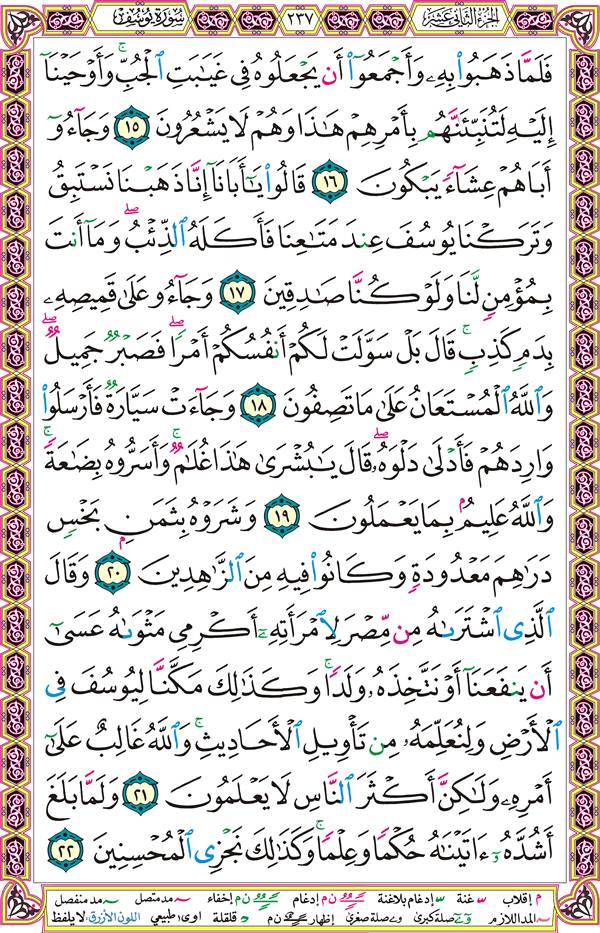 الجزء الثاني عشر ٢٣٧ سورة يوسف
فَلَمَّا ذَهَبُوا۟ بِهِۦ وَأَجْمَعُوٓا۟ أَن يَجْعَلُوهُ فِى غَيَٰبَتِ ٱلْجُبِّ ۚ وَأَوْحَيْنَآ
إِلَيْهِ لَتُنَبِّئَنَّهُم بِأَمْرِهِمْ هَٰذَا وَهُمْ لَا يَشْعُرُونَ ١٥ وَجَآءُوٓ
أَبَاهُمْ عِشَآءً يَبْكُونَ ١٦ قَالُوا۟ يَٰٓأَبَانَآ إِنَّا ذَهَبْنَا نَسْتَبِقُ
وَتَرَكْنَا يُوسُفَ عِندَ مَتَٰعِنَا فَأَكَلَهُ ٱلذِّئْبُ ۖ وَمَآ أَنتَ
بِمُؤْمِنٍ لَّنَا وَلَوْ كُنَّا صَٰدِقِينَ ١٧ وَجَآءُو عَلَىٰ قَمِيصِهِۦ
بِدَمٍ كَذِبٍ ۚ قَالَ بَلْ سَوَّلَتْ لَكُمْ أَنفُسُكُمْ أَمْرًا ۖ فَصَبْرٌ جَمِيلٌ ۖ
وَٱللَّهُ ٱلْمُسْتَعَانُ عَلَىٰ مَا تَصِفُونَ ١٨ وَجَآءَتْ سَيَّارَةٌ فَأَرْسَلُوا۟
وَارِدَهُمْ فَأَدْلَىٰ دَلْوَهُۥ ۖ قَالَ يَٰبُشْرَىٰ هَٰذَا غُلَٰمٌ ۚ وَأَسَرُّوهُ بِضَٰعَةً ۚ
وَٱللَّهُ عَلِيمٌۢ بِمَا يَعْمَلُونَ ١٩ وَشَرَوْهُ بِثَمَنٍۭ بَخْسٍ
دَرَٰهِمَ مَعْدُودَةٍ وَكَانُوا۟ فِيهِ مِنَ ٱلزَّٰهِدِينَ ٢٠ وَقَالَ
ٱلَّذِى ٱشْتَرَىٰهُ مِن مِّصْرَ لِٱمْرَأَتِهِۦٓ أَكْرِمِى مَثْوَىٰهُ عَسَىٰٓ
أَن يَنفَعَنَآ أَوْ نَتَّخِذَهُۥ وَلَدًا ۚ وَكَذَٰلِكَ مَكَّنَّا لِيُوسُفَ فِى
ٱلْأَرْضِ وَلِنُعَلِّمَهُۥ مِن تَأْوِيلِ ٱلْأَحَادِيثِ ۚ وَٱللَّهُ غَالِبٌ عَلَىٰٓ
أَمْرِهِۦ وَلَٰكِنَّ أَكْثَرَ ٱلنَّاسِ لَا يَعْلَمُونَ ٢١ وَلَمَّا بَلَغَ
أَشُدَّهُۥٓ ءَاتَيْنَٰهُ حُكْمًا وَعِلْمًا ۚ وَكَذَٰلِكَ نَجْزِى ٱلْمُحْسِنِينَ ٢٢
م إقلاب غنة إدغام بلاغنة ن م إدغام ن م إخفاء مد متصل مد منفصل
المد اللازم صلة كبرى صلة صغرى إظهار ن م قلقلة اوى: طبيعي اللون الأزرق: لا يلفظ